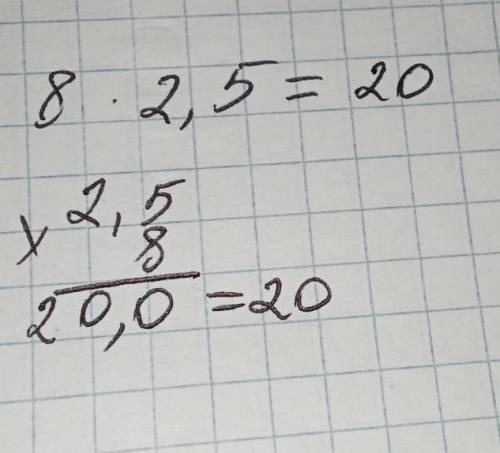 8 · 2,5 = 20
× 2,5
8
20,0 = 20